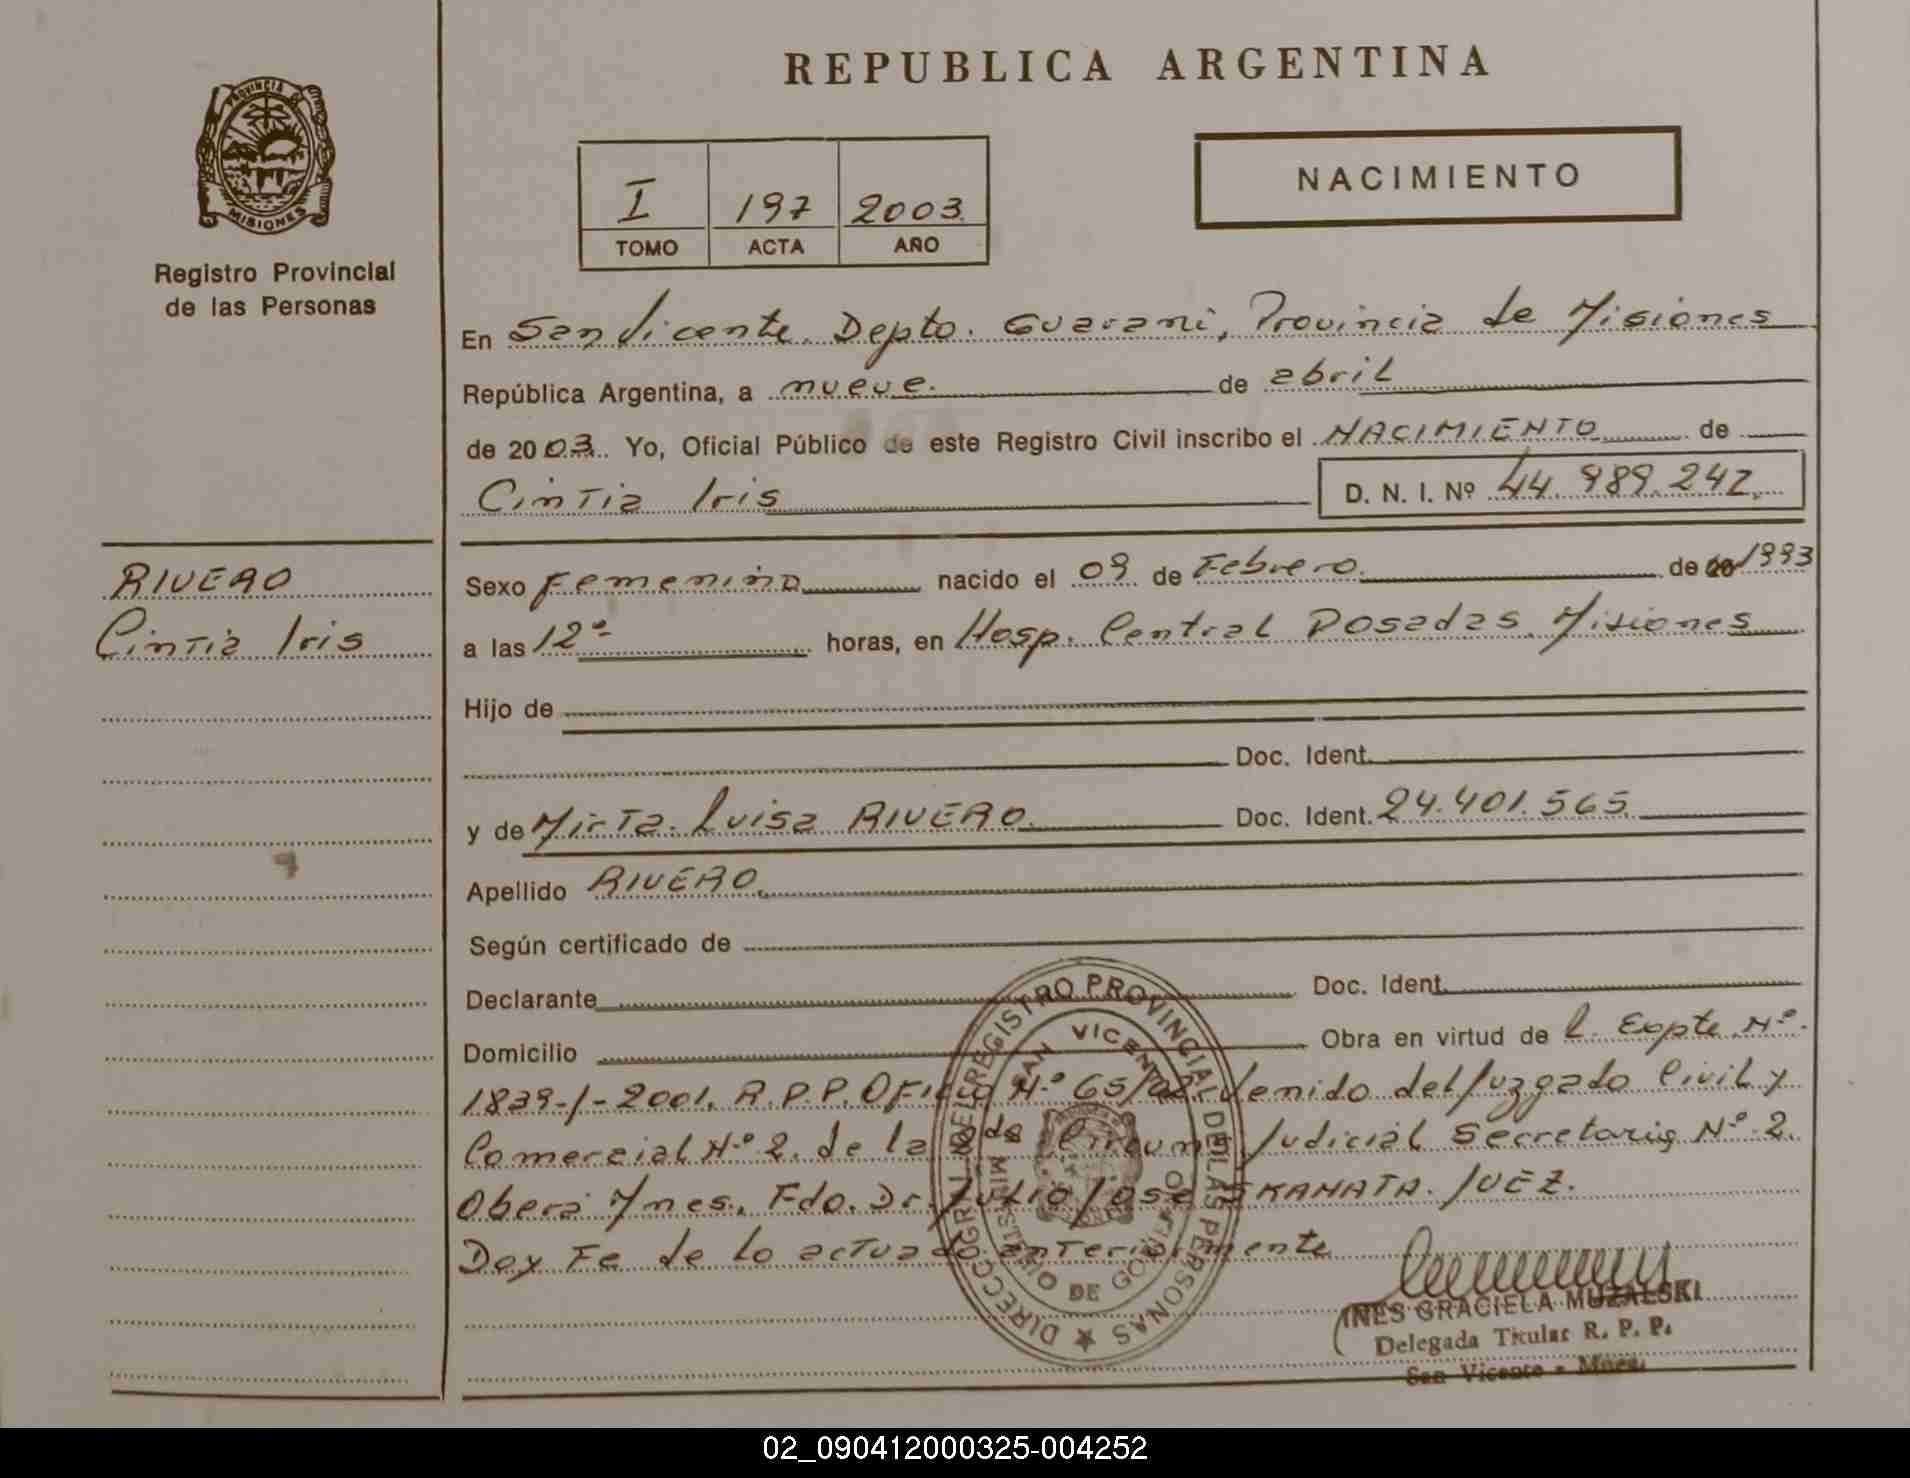 REPUBLICA ARGENTINA
PROVINCIA DE MISIONES
Registro Provincial
de las Personas
I 197 2003
TOMO ACTA AÑO
NACIMIENTO
En San Vicente Depto. Guarani, Provincia de Misiones
República Argentina, a nueve. de abril
de 2003. Yo, Oficial Público de este Registro Civil inscribo el NACIMIENTO de
Cintia Iris D. N. I. Nº 44.989.242.
RIVERO
Cintia Iris
Sexo Femenino nacido el 09 de Febrero. de 20 1993
a las 12º- horas, en Hosp. Central Posadas Misiones
Hijo de
Doc. Ident.
y de Mirta Luisa RIVERO. Doc. Ident. 24.401.565.
Apellido RIVERO.
Según certificado de
Declarante Doc. Ident.
Domicilio Obra en virtud de l. Expte Nº.
1839-/-2001. R.P.P. Oficio Nº 65/02. Venido del Juzgado Civil y
Comercial Nº 2. de la 2da Circuns. Judicial Secretaria Nº 2.
Obera Mnes., Fdo. Dr. Julio Jose SKANATA. JUEZ.
Doy Fe de lo actuado anteriormente
DIRECC. GRAL. DEL REGISTRO PROVINCIAL DE LAS PERSONAS
SAN VICENTE
MINISTERIO DE GOBIERNO
INES GRACIELA MUZALSKI
Delegada Titular R. P. P.
San Vicente - Mnes.
02_090412000325-004252